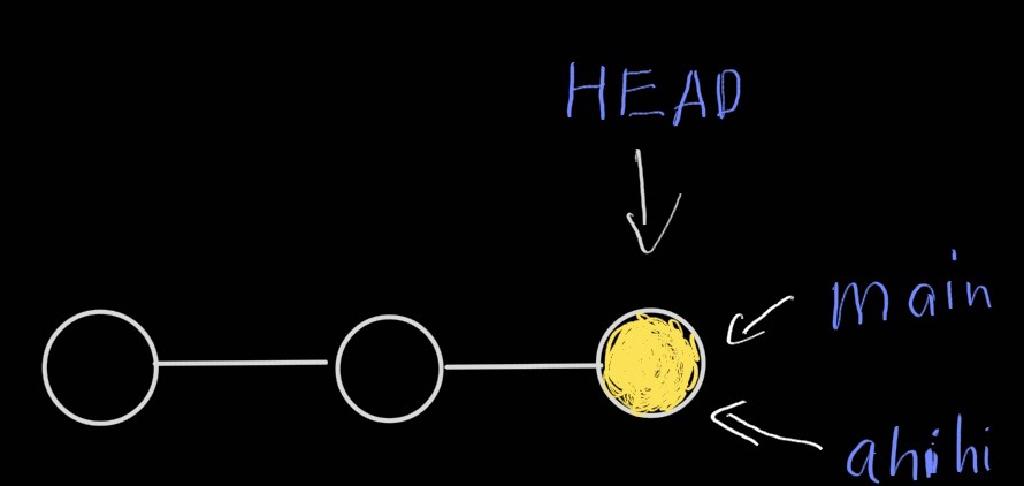 HEAD
main
ahihi